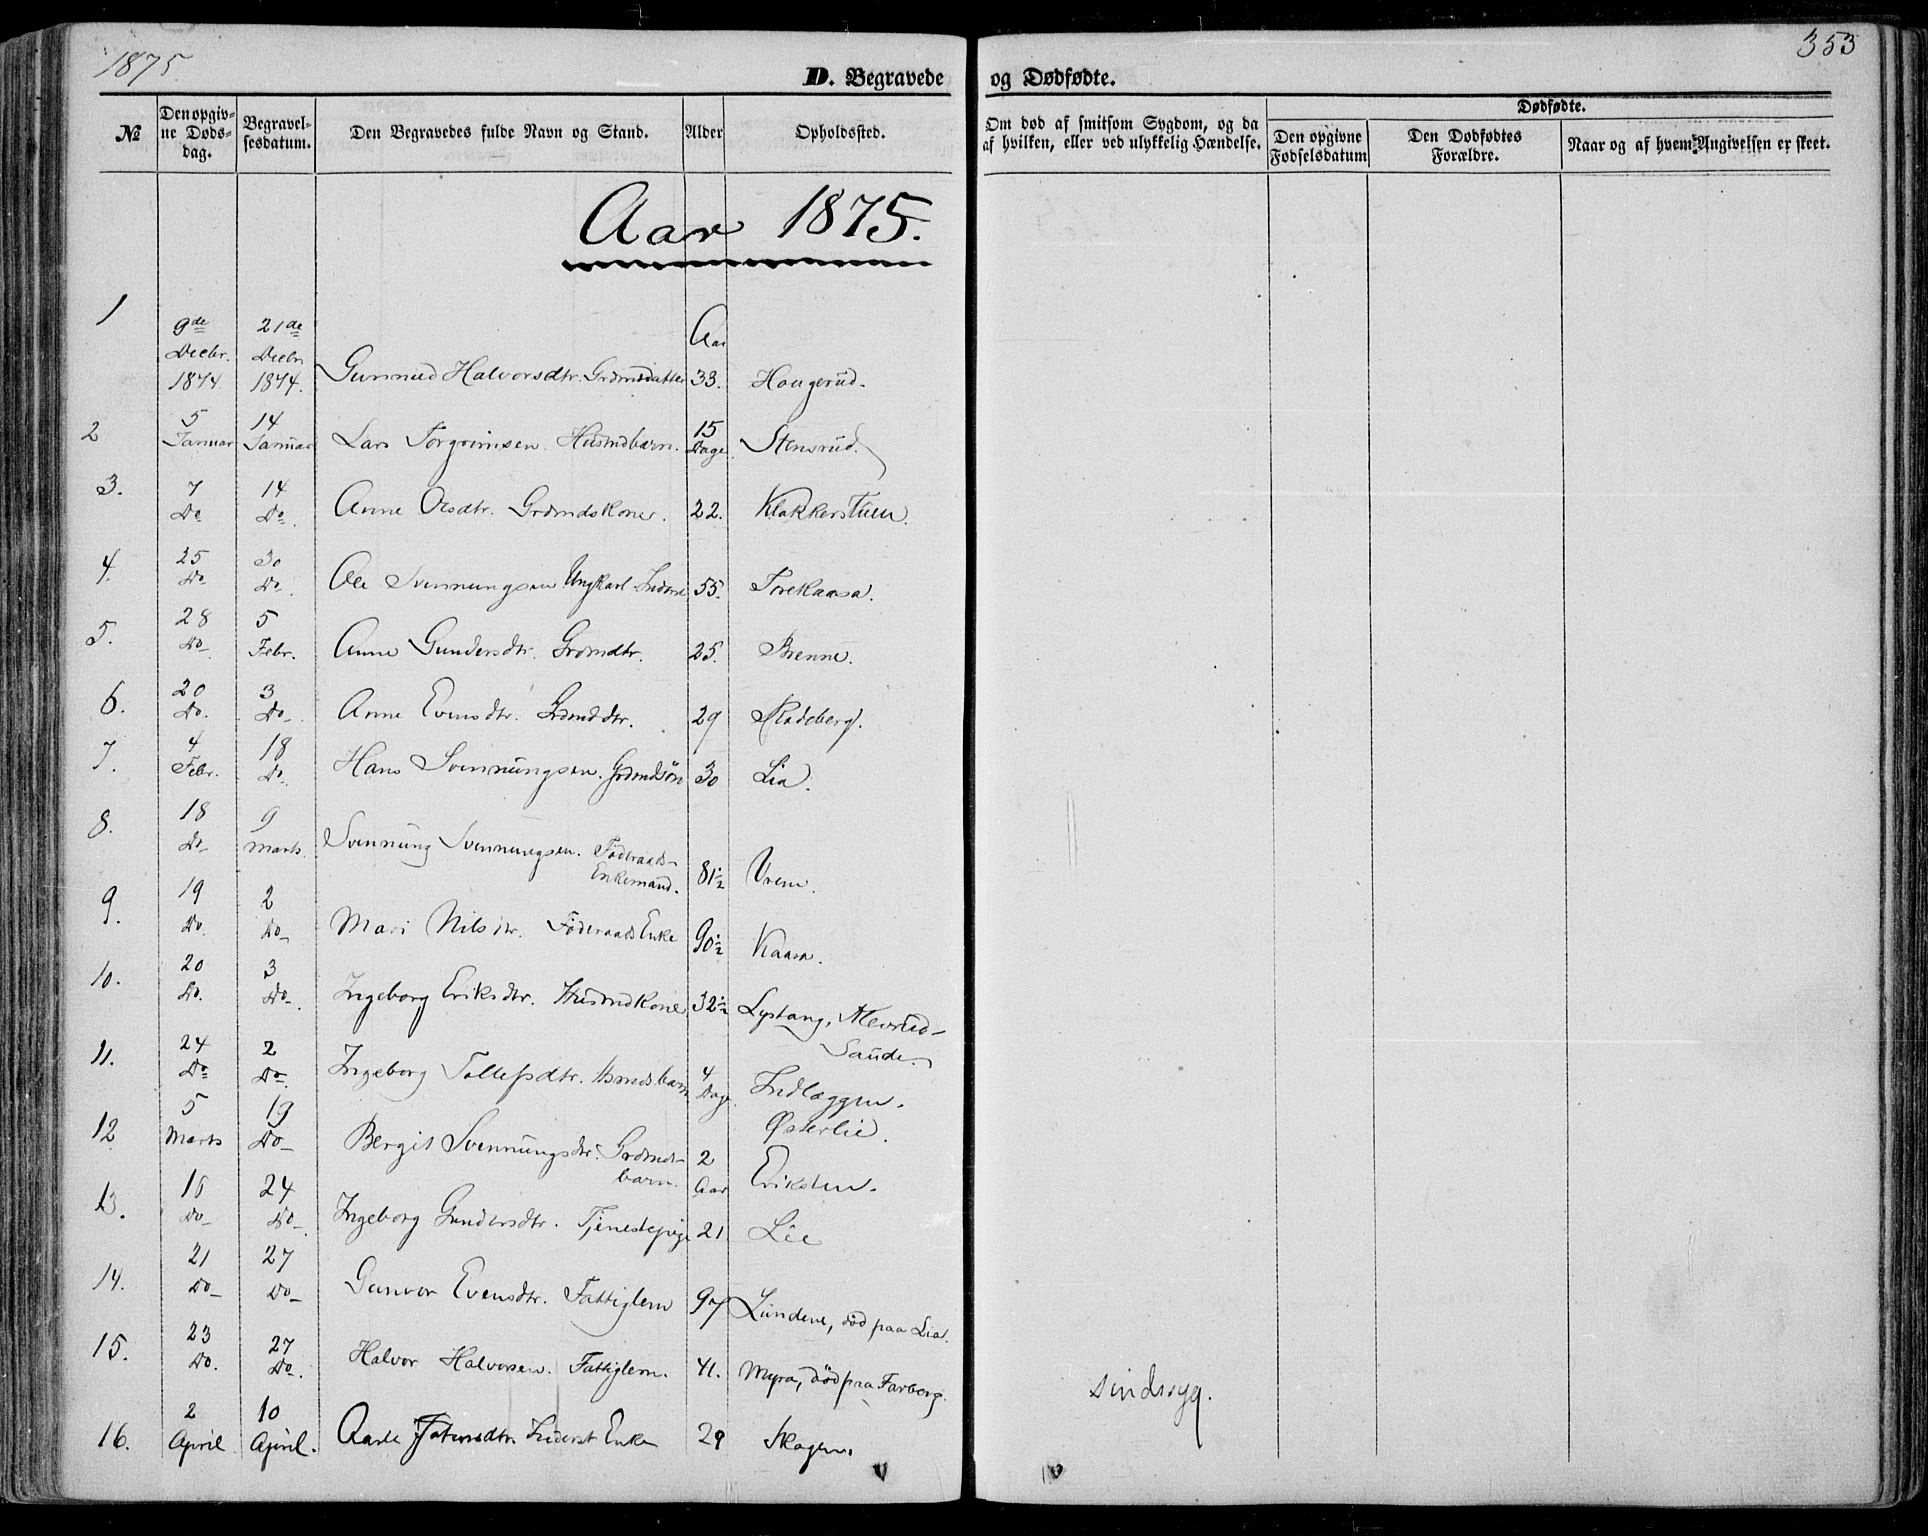 1875
353
D. Begravede og Dødfødte.
№
Den opgiv-
ne Døds-
dag.
Begravel-
sesdatum.
Den Begravedes fulde Navn og Stand.
Alder
Opholdssted.
Om død af smitsom Sygdom, og da
af hvilken, eller ved ulykkelig Hændelse.
Dødfødte.
Den opgivne
Fødselsdatum
Den Dødfødtes
Forældre.
Naar og af hvem Angivelsen er skeet.
Aar 1875.
1 9de Decbr. 1874 21de Decbr 1874. Gunnild Halvorsdtr. Grdmsdatter Aar 33. Haugerud.
2 5 Januar 14 Januar Lars Torgrimsen. Husmdbarn. 15 Dage Stensrud.
3. 7 Do 14 Do. Anne Olsdtr. Grdmdskone. 22. Klakkerstuen.
4. 25 Do 30 Do. Ole Svennungsen Ungkarl Inderst 55. Torekaasa.
5. 28 Do 5 Febr. Anne Gundersdtr. Grdmdtr. 25. Brenne.
6. 20 Do. 3 Do Anne Evensdtr. Grdmddtr. 29
7. 4 Febr. 18 Do. Hans Svennungsen. Grdmdsøn 30 Lia.
8. 18 Do 9 Marts. Svennung Svennungsen. Føderaads-
Enkemand. 81½ Vrem.
9. 19 Do. 2 Do Mari Nilsdtr. FøderaadsEnke 90½ Kaasa.
10. 20 Do. 3 Do. Ingeborg Eriksdtr. Husmdkone 32½ Lystang,
Saude.
11. 24 Do 2 Do. Ingeborg Tollefsdtr. Hsmdsbarn 4 Dage. Indlæggen.
Østerlie.
12 5 Marts 19 Do Bergit Svennungsdtr. Grdmds-
barn. 2 Aar Erikstun.
13. 16 Do 24 Do. Ingeborg Gundersdtr. Tjenestepige 21 Lie
14. 21 Do 27 Do Gunvor Evensdtr. Fattiglem 97 Lundene, død paa Lia.
15. 23 Do. 27 Do. Halvor Halvorsen. Fattiglem. 41. Myra, død paa Farberg. sindssyg.
16. 2 April 10 April. Aasle Inderst Enke 29 Skogen.